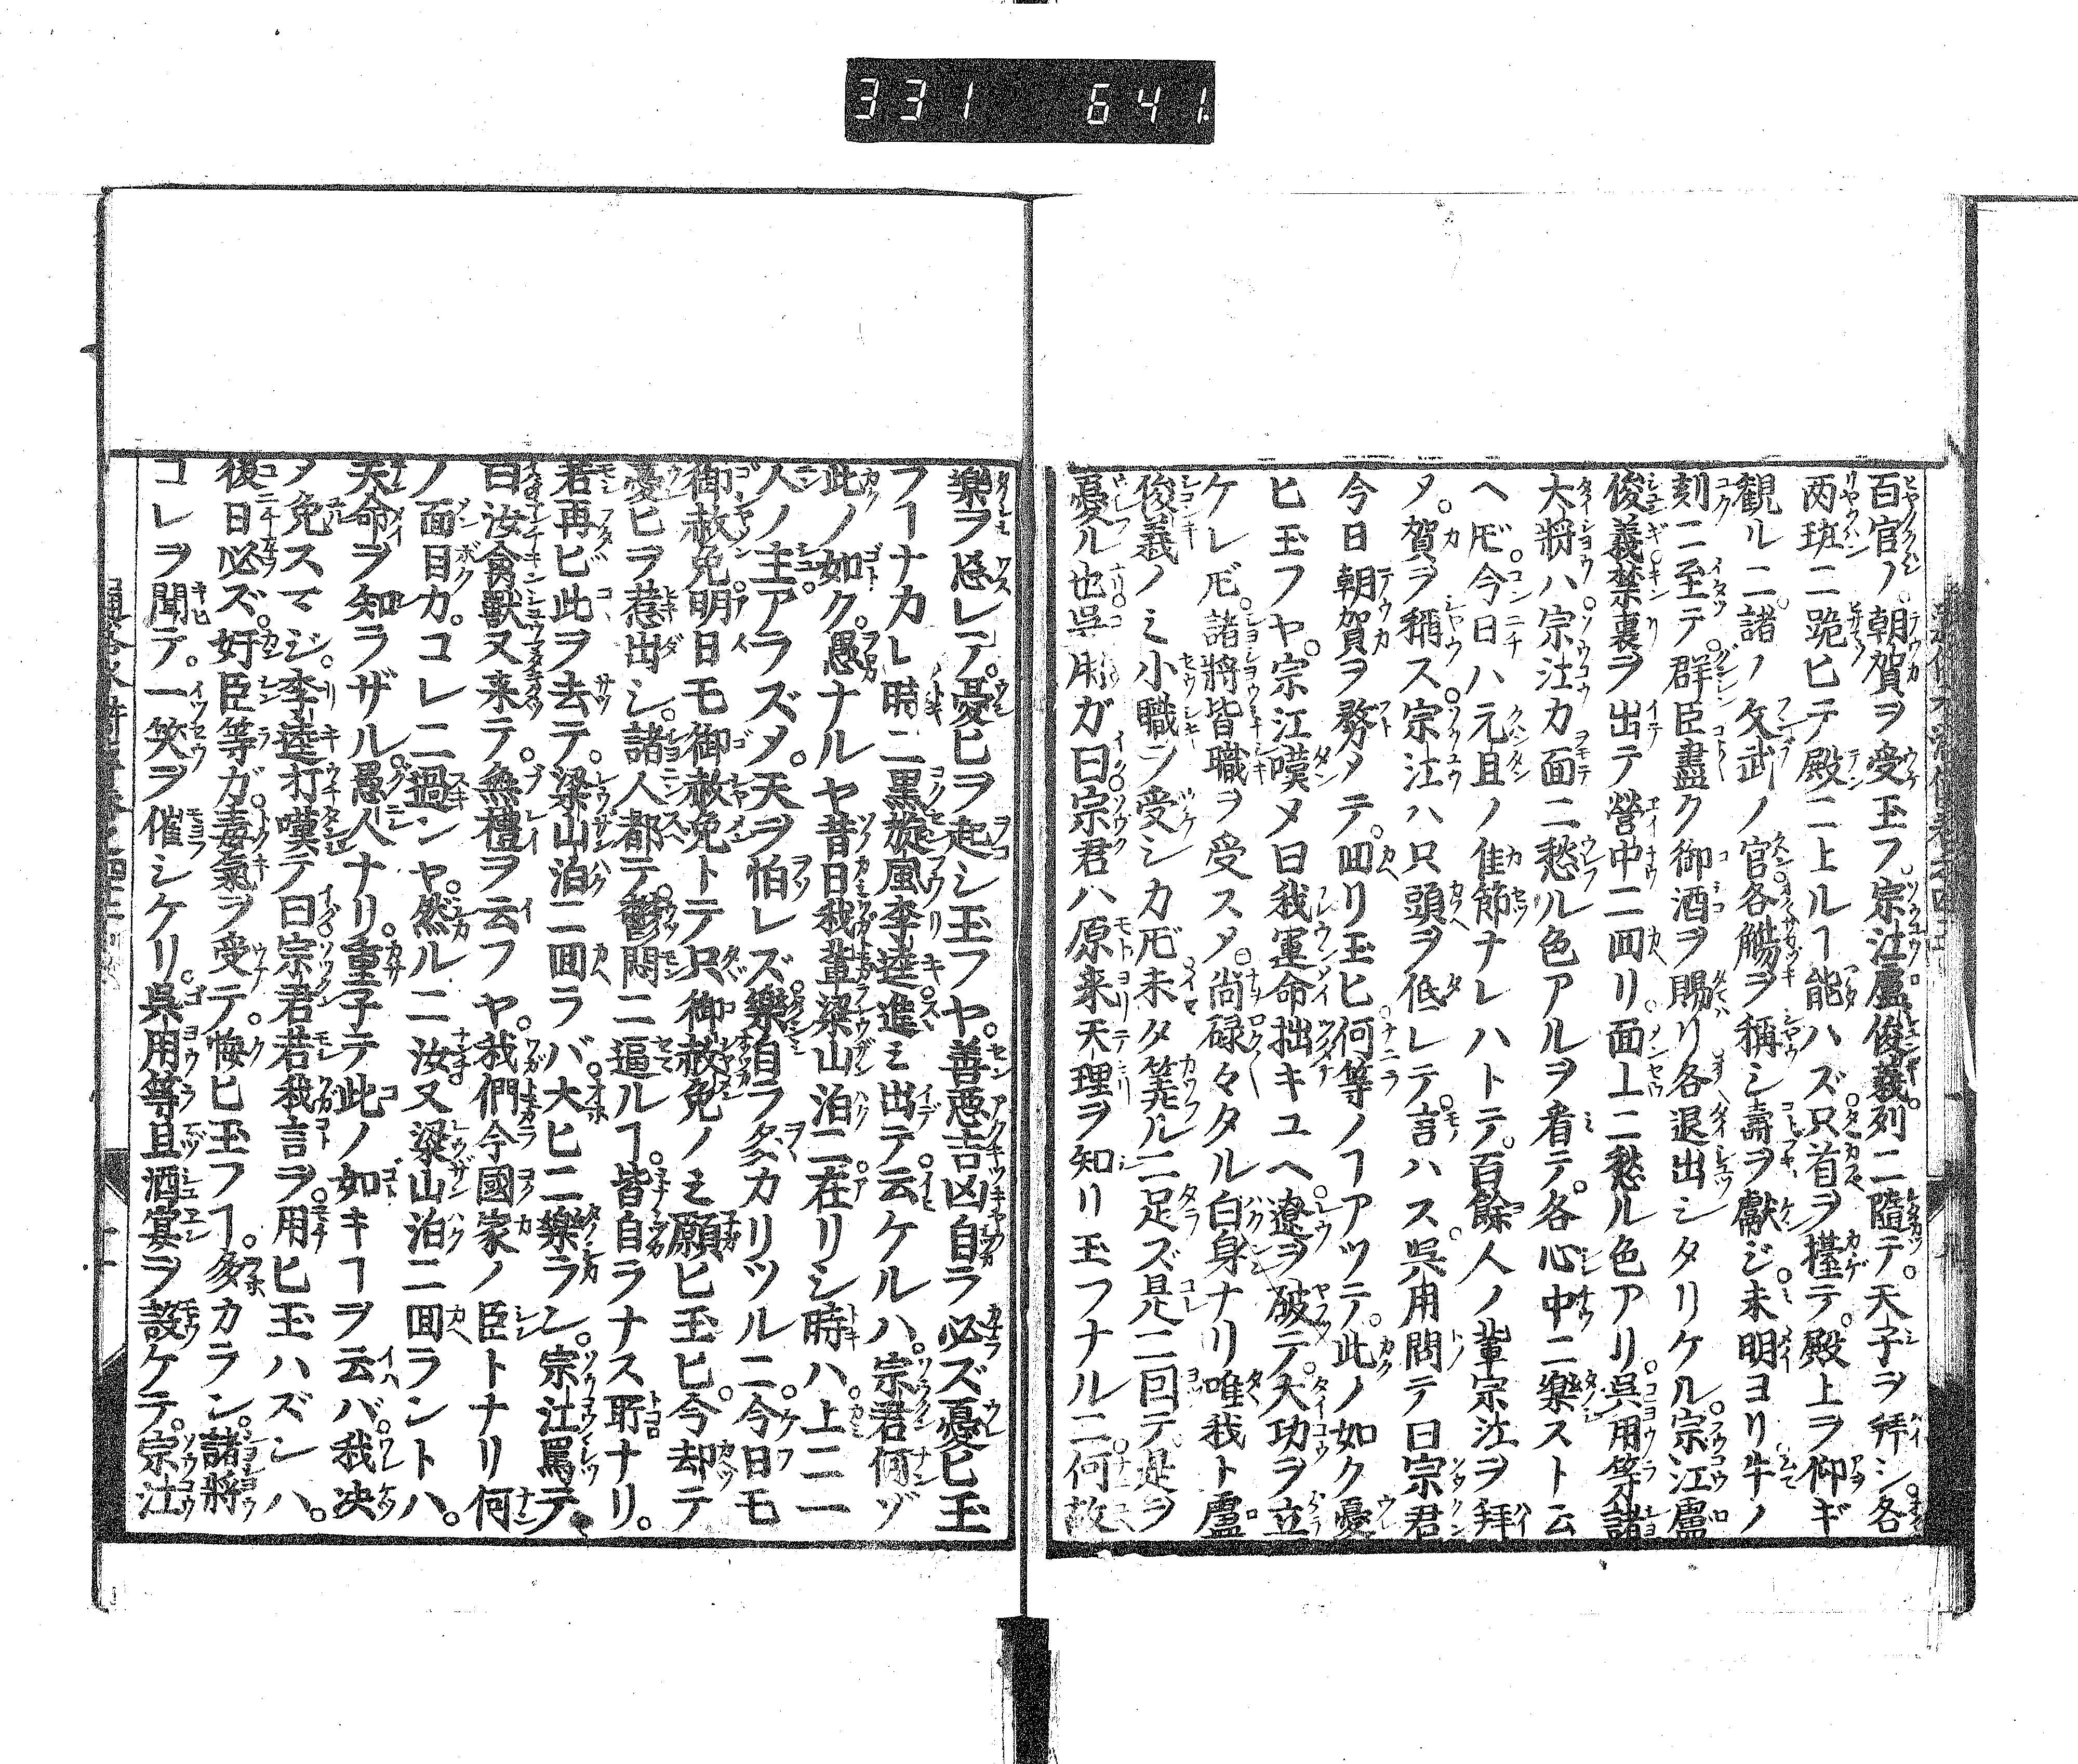 331 641.
百官ノ朝賀ヲ受玉フ。宗江盧俊義。列ニ隨テ。天子ヲ拜シ。各
两班ニ跪ヒテ殿ニ上ルヿ能ハズ只首ヲ擡テ。殿上ヲ仰ギ
観ルニ諸ノ文武ノ官各觴ヲ稱シ壽ヲ獻ジ。未明ヨリ牛ノ
刻ニ至テ。群臣盡ク御酒ヲ賜リ各退出シタリケル。宗江盧
俊義禁裏ヲ出テ營中ニ囬リ。面上ニ愁ル色アリ。呉用等諸
大將ハ。宗江カ面ニ愁ル色アルヲ看テ。各心中ニ樂スト云
ヘ𪜈。今日ハ元且ノ佳節ナレハトテ。百餘人ノ輩宗江ヲ拜
メ。賀ヲ稱ス。宗江ハ只頭ヲ低レテ。言ハス。呉用問テ曰宗君
今日朝賀ヲ務メテ。囬リ玉ヒ。何等ノヿアツテ。此ノ如ク憂
ヒ玉フヤ。宗江嘆メ曰我運命拙キユヘ。遼ヲ破テ。大功ヲ立
ケレ𪜈。諸將皆職ヲ受スメ。尚碌々タル白身ナリ唯我ト盧
俊義ノミ小職ヲ受シカ𪜈未タ筭ルニ足ズ是ニ回テ。是ヲ
憂ル也呉用ガ曰。宗君ハ原来天理ヲ知リ玉フナルニ。何故
樂ヲ忘レテ。憂ヒヲ起シ玉フヤ。善悪吉凶自ラ必ズ憂ヒ玉
フーナカレ時ニ黒旋風李逵進ミ出テ。云ケルハ。宗君何ゾ
此ノ如ク。愚ナルヤ昔日我輩梁山泊ニ在リシ時ハ。上ニ一
人ノ主アラズメ。天ヲ怕レズ。樂自ラ多カリツルニ。今日モ
御赦免。明日モ御赦免トテ只御赦免ノミ願ヒ玉ヒ。今却テ
憂ヒヲ惹出シ。諸人都テ鬱悶ニ逼ルヿ。皆自ラナス所ナリ。
若再ビ此ヲ去テ。梁山泊ニ囬ラバ。大ヒニ樂ラン。宗江罵テ
曰汝禽獸又来テ。無禮ヲ云フヤ。我們今國家ノ臣トナリ何
ノ面目カ。コレニ過ンヤ。然ルニ汝又梁山泊ニ囬ラントハ。
天命ヲ知ラザル。愚人ナリ。重子テ此ノ如キヿヲ云バ。我决
メ免スマジ。李逵打嘆テ曰。宗君若我言ヲ。用ヒ玉ハズンハ。
後日必ズ。奸臣等ガ。毒氣ヲ受テ。悔ヒ玉フヿ。多カラン。諸將
コレヲ聞テ。一笑ヲ催シケリ。呉用等且酒宴ヲ設ケテ。宗江